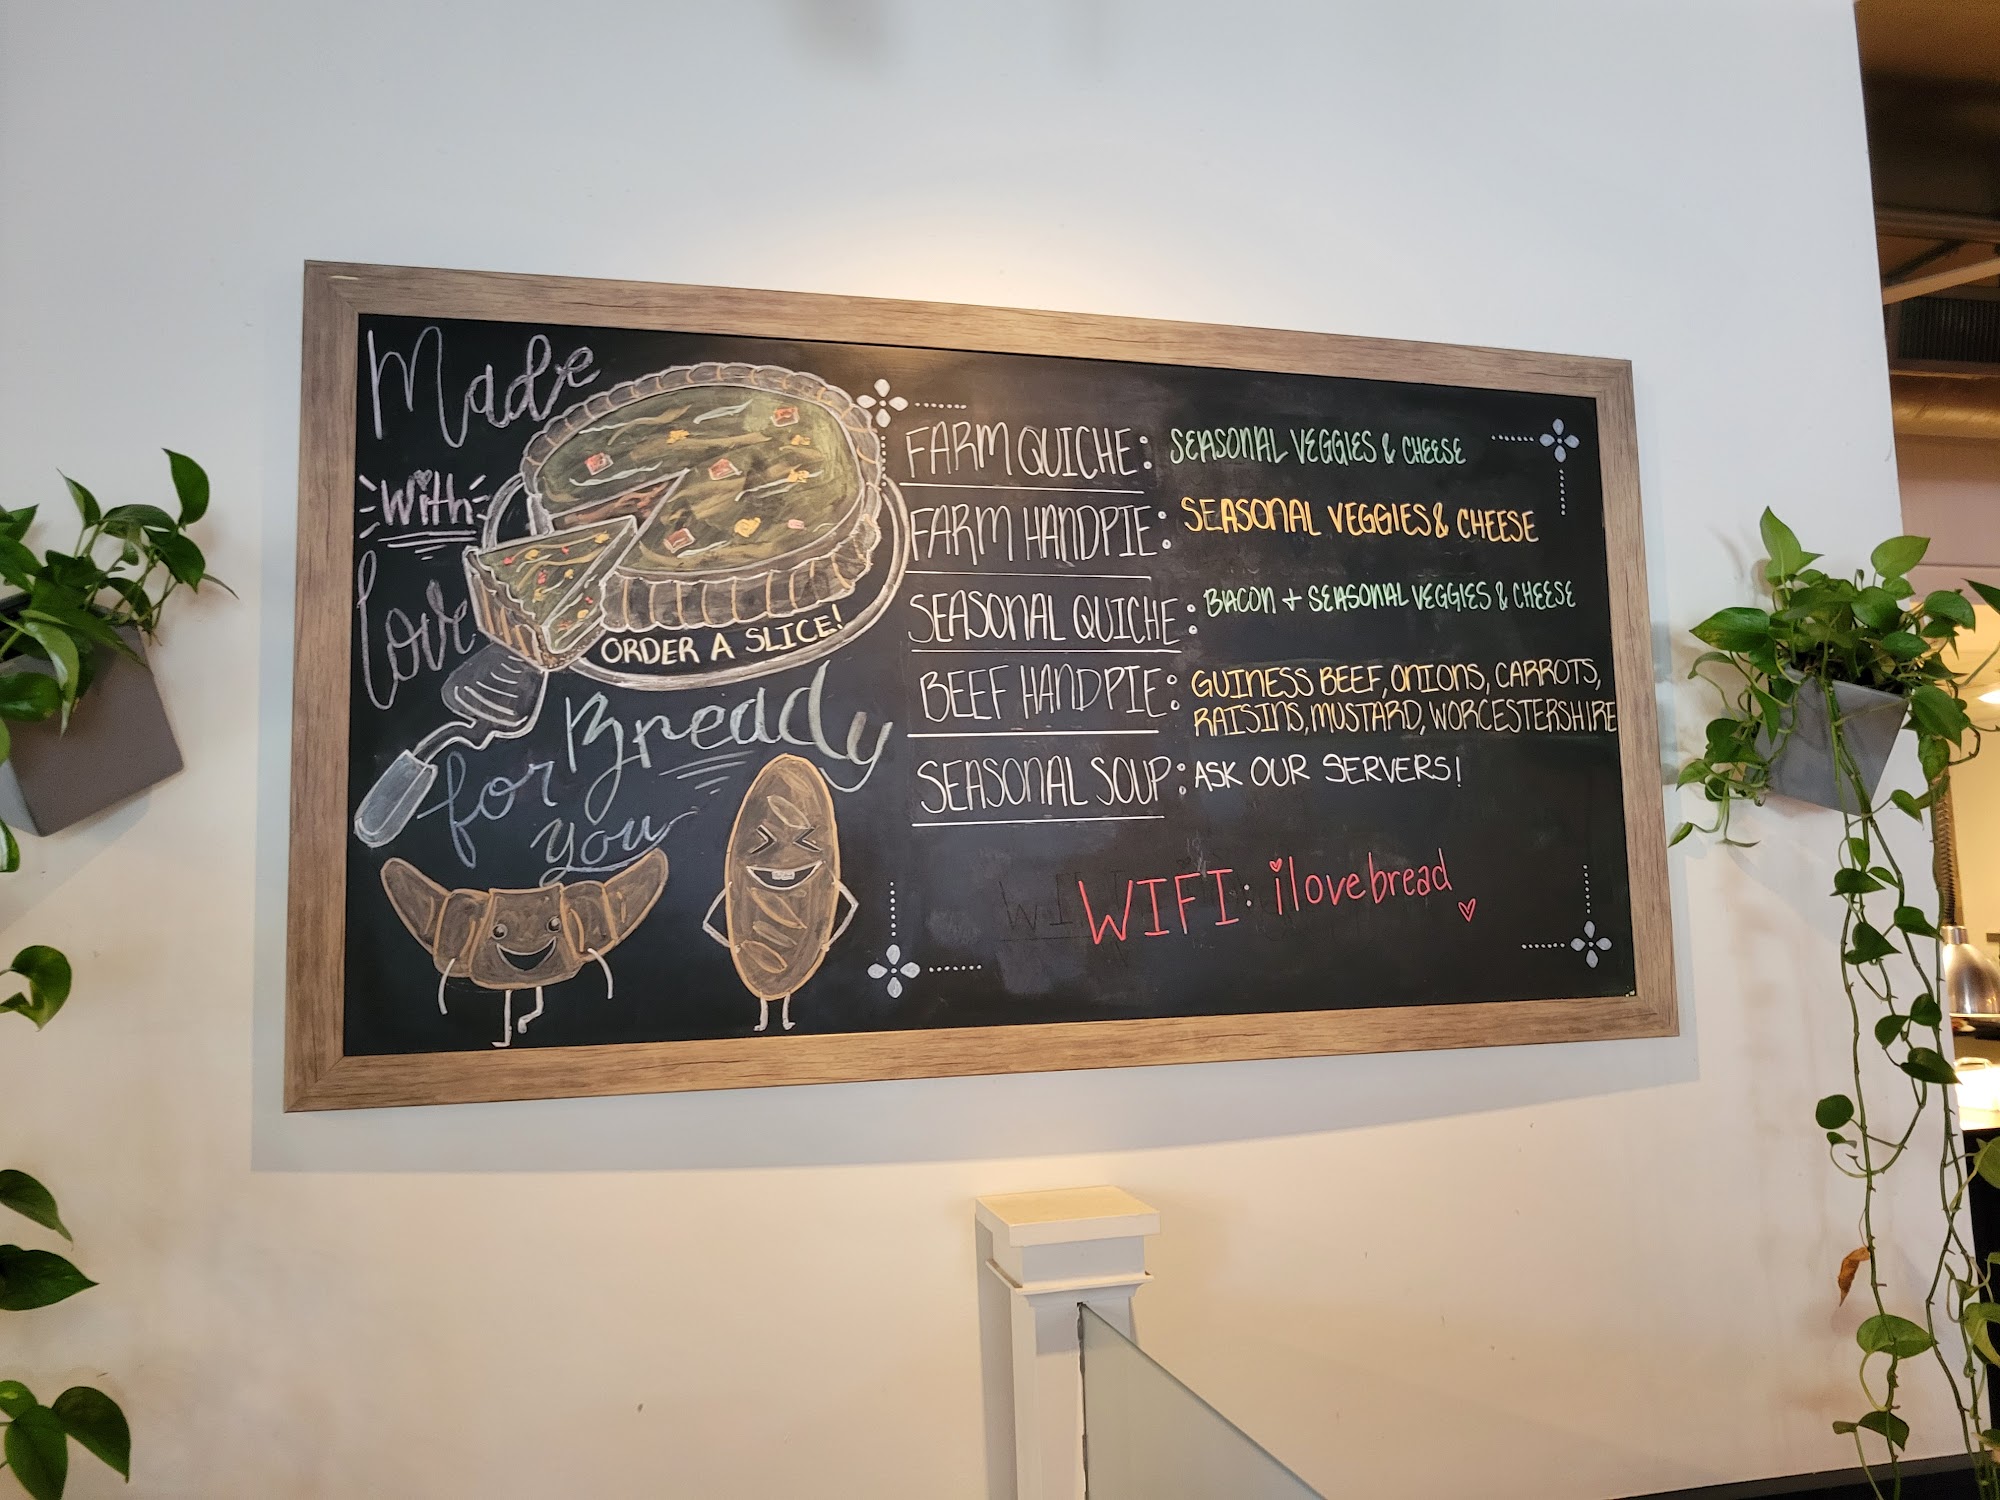 Made
with
love
ORDER A SLICE!
for Breddy
you
FARM QUICHE: SEASONAL VEGGIES & CHEESE
FARM HANDPIE: SEASONAL VEGGIES & CHEESE
SEASONAL QUICHE: BACON + SEASONAL VEGGIES & CHEESE
BEEF HANDPIE: GUINESS BEEF, ONIONS, CARROTS,
RAISINS, MUSTARD, WORCESTERSHIRE
SEASONAL SOUP: ASK OUR SERVERS!
WIFI: ilovebread